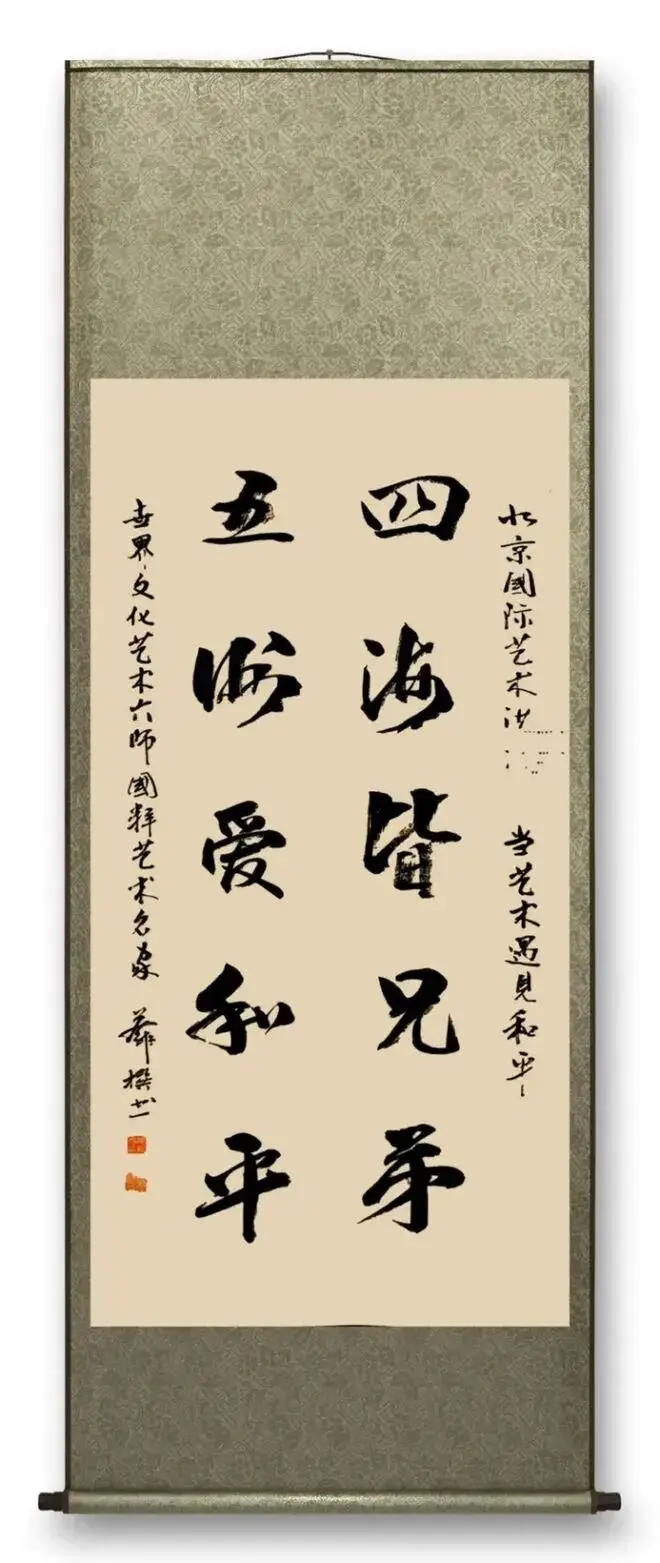 北京國际艺术 当艺术遇見和平
四海皆兄弟
五洲爱和平
世界文化艺术大师國粹艺术名家 撰书